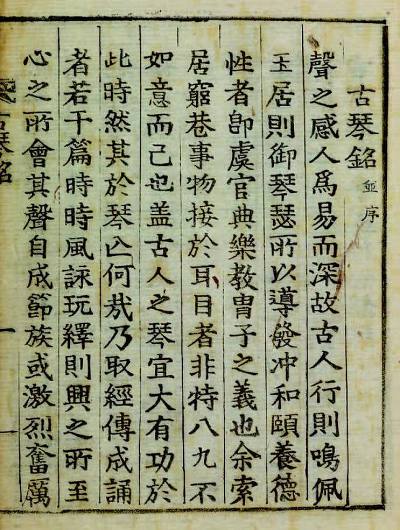 古琴銘 並序
聲之感人爲易而深故古人行則鳴佩
玉居則御琴瑟所以導發冲和頤養德
性者卽虞官典樂教胄子之義也余索
居窮巷事物接於耳目者非特八九不
如意而已也盖古人之琴宜大有功於
此時然其於琴亾何哉乃取經傳成誦
者若干篇時時風詠玩繹則興之所至
心之所會其聲自成節族或激烈奮厲
古琴銘 一